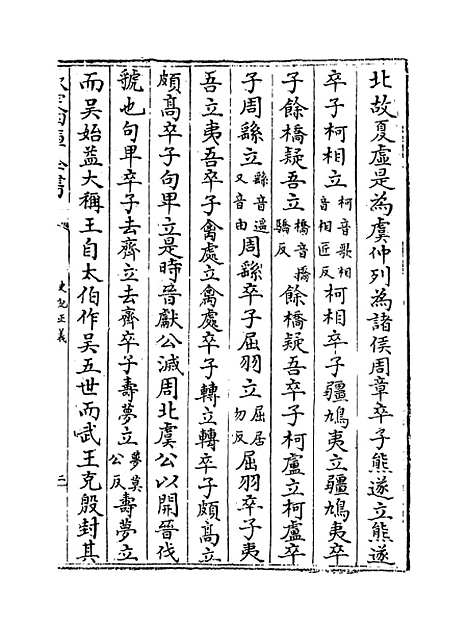 北故夏虛是為虞仲列為諸侯周章卒子熊遂立熊遂
卒子柯相立柯音歌相音相匠反柯相卒子疆鳩夷立疆鳩夷卒
子餘橋疑吾立橋音撟驕反餘橋疑吾卒子柯盧立柯盧卒
子周繇立繇音遥又音由周繇卒子屈羽立屈居勿反屈羽卒子夷
吾立夷吾卒子禽處立禽處卒子轉立轉卒子頗髙立
頗髙卒子句卑立是時晉獻公滅周北虞公以開晉伐
虢也句卑卒子去齊立去齊卒子壽夢立夢莫公反壽夢立
而吳始益大稱王自太伯作吳五世而武王克殷封其
史記正義
三